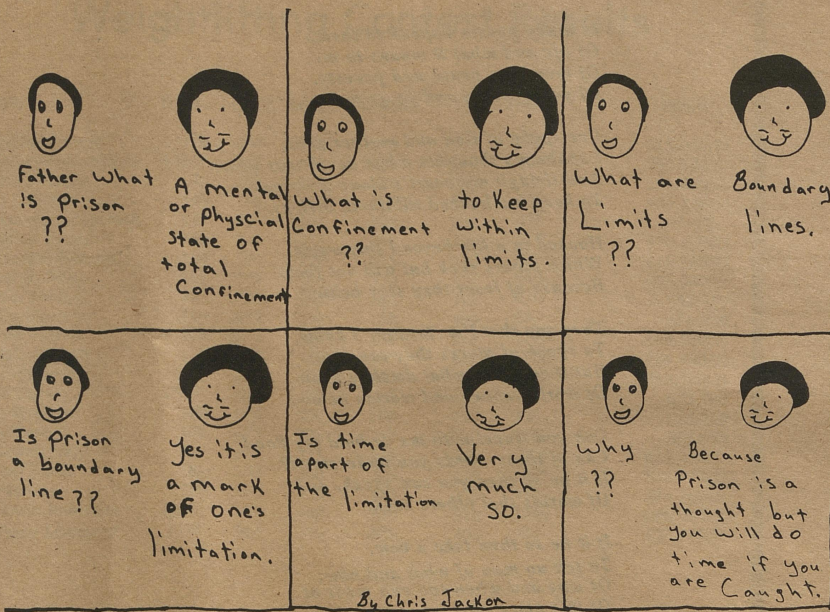 Father what
is prison
??
A mental
or physcial
state of
total
Confinement
What is
Confinement
??
to Keep
within
limits.
What are
Limits
??
Boundary
lines.
Is prison
a boundary
line ??
Yes it is
a mark
of one's
limitation.
Is time
apart of
the limitation
Very
much
so.
Why
??
Because
Prison is a
thought but
you will do
time if you
are Caught.
By Chris Jackon